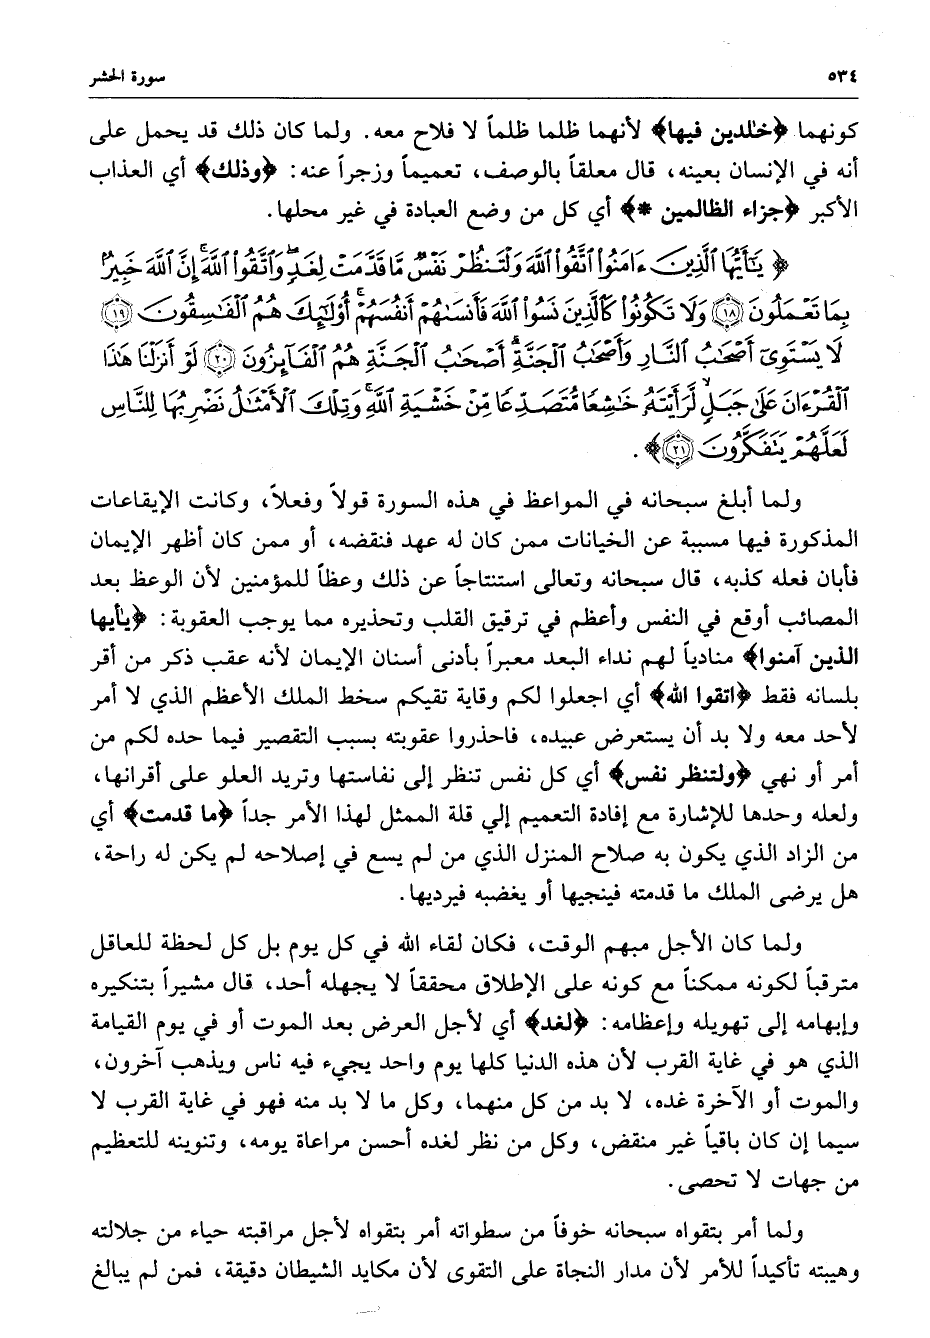 ٥٣٤ سورة الحشر
كونهما ﴿خلدين فيها﴾ لأنهما ظلما ظلماً لا فلاح معه. ولما كان ذلك قد يحمل على
أنه في الإنسان بعينه، قال معلقاً بالوصف، تعميماً وزجراً عنه: ﴿وذلك﴾ أي العذاب
الأكبر ﴿جزاء الظالمين *﴾ أي كل من وضع العبادة في غير محلها.
﴿يَـٰٓأَيُّهَا ٱلَّذِينَ ءَامَنُوا۟ ٱتَّقُوا۟ ٱللَّهَ وَلْتَنظُرْ نَفْسٌ مَّا قَدَّمَتْ لِغَدٍ ۖ وَٱتَّقُوا۟ ٱللَّهَ ۚ إِنَّ ٱللَّهَ خَبِيرٌۢ
بِمَا تَعْمَلُونَ ﴿١٨﴾ وَلَا تَكُونُوا۟ كَٱلَّذِينَ نَسُوا۟ ٱللَّهَ فَأَنسَىٰهُمْ أَنفُسَهُمْ ۚ أُو۟لَـٰٓئِكَ هُمُ ٱلْفَـٰسِقُونَ ﴿١٩﴾
لَا يَسْتَوِىٓ أَصْحَـٰبُ ٱلنَّارِ وَأَصْحَـٰبُ ٱلْجَنَّةِ ۚ أَصْحَـٰبُ ٱلْجَنَّةِ هُمُ ٱلْفَآئِزُونَ ﴿٢٠﴾ لَوْ أَنزَلْنَا هَـٰذَا
ٱلْقُرْءَانَ عَلَىٰ جَبَلٍ لَّرَأَيْتَهُۥ خَـٰشِعًا مُّتَصَدِّعًا مِّنْ خَشْيَةِ ٱللَّهِ ۚ وَتِلْكَ ٱلْأَمْثَـٰلُ نَضْرِبُهَا لِلنَّاسِ
لَعَلَّهُمْ يَتَفَكَّرُونَ ﴿٢١﴾﴾.
ولما أبلغ سبحانه في المواعظ في هذه السورة قولاً وفعلاً، وكانت الإيقاعات
المذكورة فيها مسببة عن الخيانات ممن كان له عهد فنقضه، أو ممن كان أظهر الإيمان
فأبان فعله كذبه، قال سبحانه وتعالى استنتاجاً عن ذلك وعظاً للمؤمنين لأن الوعظ بعد
المصائب أوقع في النفس وأعظم في ترقيق القلب وتحذيره مما يوجب العقوبة: ﴿يأيها
الذين آمنوا﴾ منادياً لهم نداء البعد معبراً بأدنى أسنان الإيمان لأنه عقب ذكر من أقر
بلسانه فقط ﴿اتقوا الله﴾ أي اجعلوا لكم وقاية تقيكم سخط الملك الأعظم الذي لا أمر
لأحد معه ولا بد أن يستعرض عبيده، فاحذروا عقوبته بسبب التقصير فيما حده لكم من
أمر أو نهي ﴿ولتنظر نفس﴾ أي كل نفس تنظر إلى نفاستها وتريد العلو على أقرانها،
ولعله وحدها للإشارة مع إفادة التعميم إلي قلة الممثل لهذا الأمر جداً ﴿ما قدمت﴾ أي
من الزاد الذي يكون به صلاح المنزل الذي من لم يسع في إصلاحه لم يكن له راحة،
هل يرضى الملك ما قدمته فينجيها أو يغضبه فيرديها.
ولما كان الأجل مبهم الوقت، فكان لقاء الله في كل يوم بل كل لحظة للعاقل
مترقباً لكونه ممكناً مع كونه على الإطلاق محققاً لا يجهله أحد، قال مشيراً بتنكيره
وإبهامه إلى تهويله وإعظامه: ﴿لغد﴾ أي لأجل العرض بعد الموت أو في يوم القيامة
الذي هو في غاية القرب لأن هذه الدنيا كلها يوم واحد يجيء فيه ناس ويذهب آخرون،
والموت أو الآخرة غده، لا بد من كل منهما، وكل ما لا بد منه فهو في غاية القرب لا
سيما إن كان باقياً غير منقض، وكل من نظر لغده أحسن مراعاة يومه، وتنوينه للتعظيم
من جهات لا تحصى.
ولما أمر بتقواه سبحانه خوفاً من سطواته أمر بتقواه لأجل مراقبته حياء من جلالته
وهيبته تأكيداً للأمر لأن مدار النجاة على التقوى لأن مكايد الشيطان دقيقة، فمن لم يبالغ